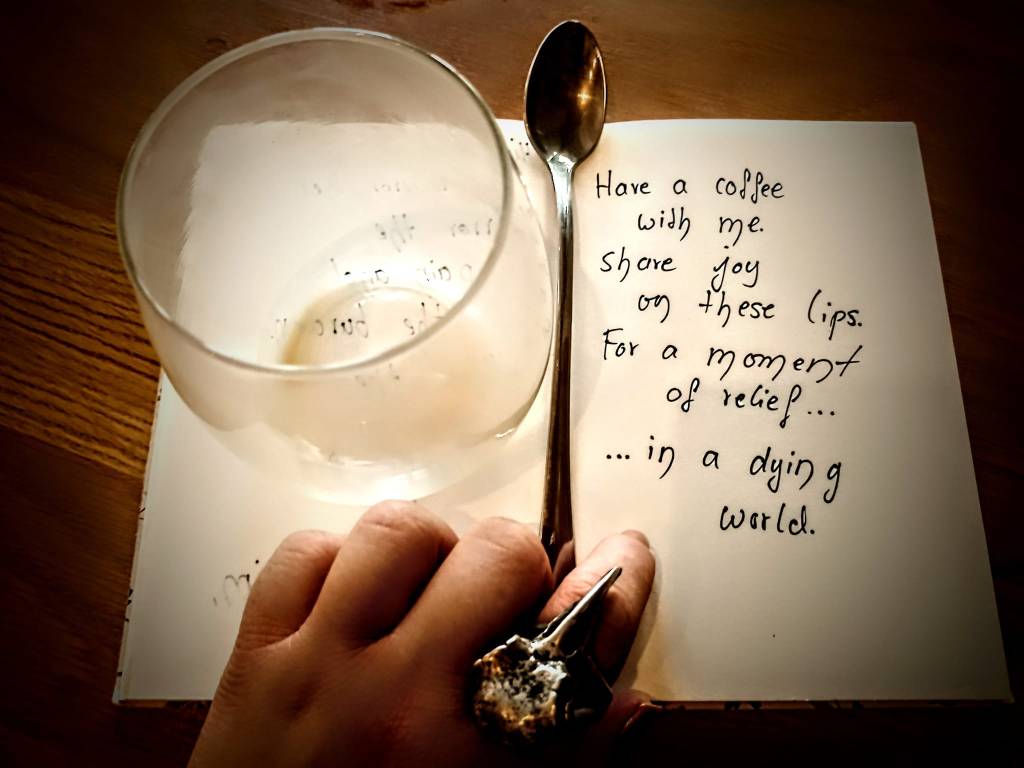 the
and
the burden
Have a coffee
with me.
Share joy
on these lips.
For a moment
of relief...
...in a dying
world.